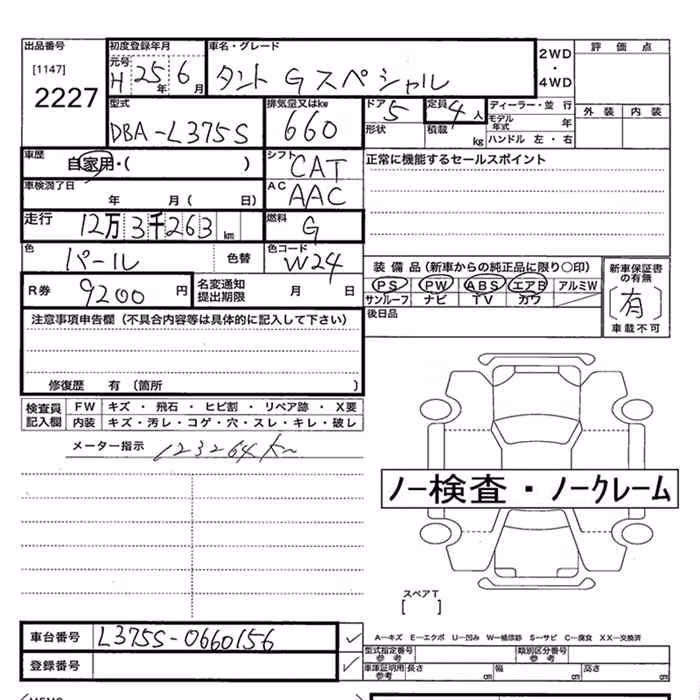 出品番号
[1147]
2227
初度登録年月
元号
H 25年 6月
車名・グレード
タント Gスペシャル
2WD
・
4WD
評価点
外装 内装
型式
DBA-L375S
排気量又はkw
660
ドア 5
形状
定員 4人
積載 kg
ディーラー・並行
モデル年式 年
ハンドル 左・右
車歴
自家用・( )
シフト
CAT
正常に機能するセールスポイント
車検満了日
年 月( 日)
AC
AAC
走行
12万3千263km
燃料
G
色
パール
色替
色コード
W24
装備品(新車からの純正品に限り〇印)
PS PW ABS エアB アルミW
サンルーフ ナビ TV カワ
新車保証書の有無
[有]
車載不可
R券
9200円
名変通知
提出期限
月 日
後日品
注意事項申告欄(不具合内容等は具体的に記入して下さい)
修復歴 有(箇所 )
検査員
記入欄
FW キズ・飛石・ヒビ割・リペア跡・X要
内装 キズ・汚レ・コゲ・穴・スレ・キレ・破レ
メーター指示 123264km
ノー検査・ノークレーム
スペアT
[ ]
車台番号
L375S-0660156
登録番号
A―キズ E―エクボ U―凹み W―補修跡 S―サビ C―腐食 XX―交換済
型式指定番号
参考
類別区分番号
参考
車庫証明用
参考
長さ cm 幅 cm 高さ cm